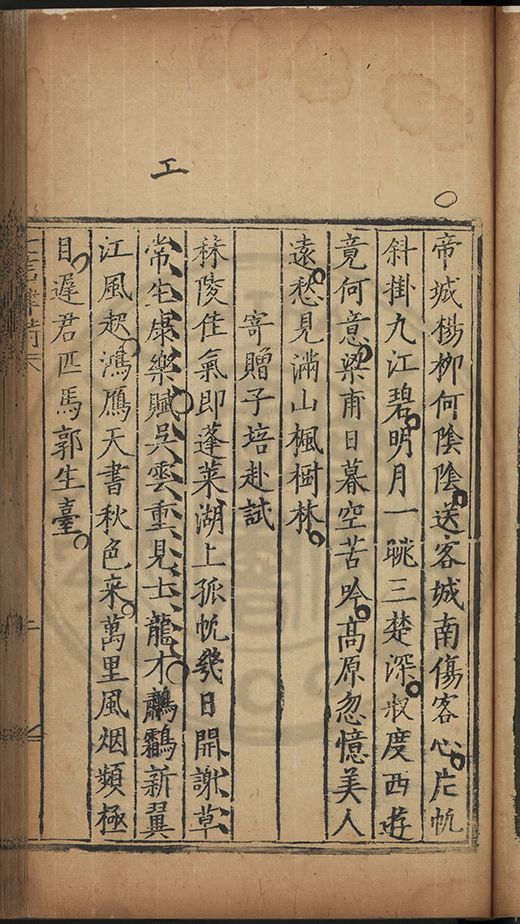 工
帝城楊柳何陰陰送客城南傷客心片帆
斜掛九江碧明月一眺三楚深叔度西遊
竟何意梁甫日暮空苦吟高原忽憶美人
遠愁見滿山楓樹林
寄贈子培赴試
秣陵佳氣即蓬萊湖上孤帆幾日開謝草
常生康樂賦吳雲重見士龍才鸘新翼
江風起鴻鴈天書秋色來萬里風烟頻極
目遲君匹馬郭生臺